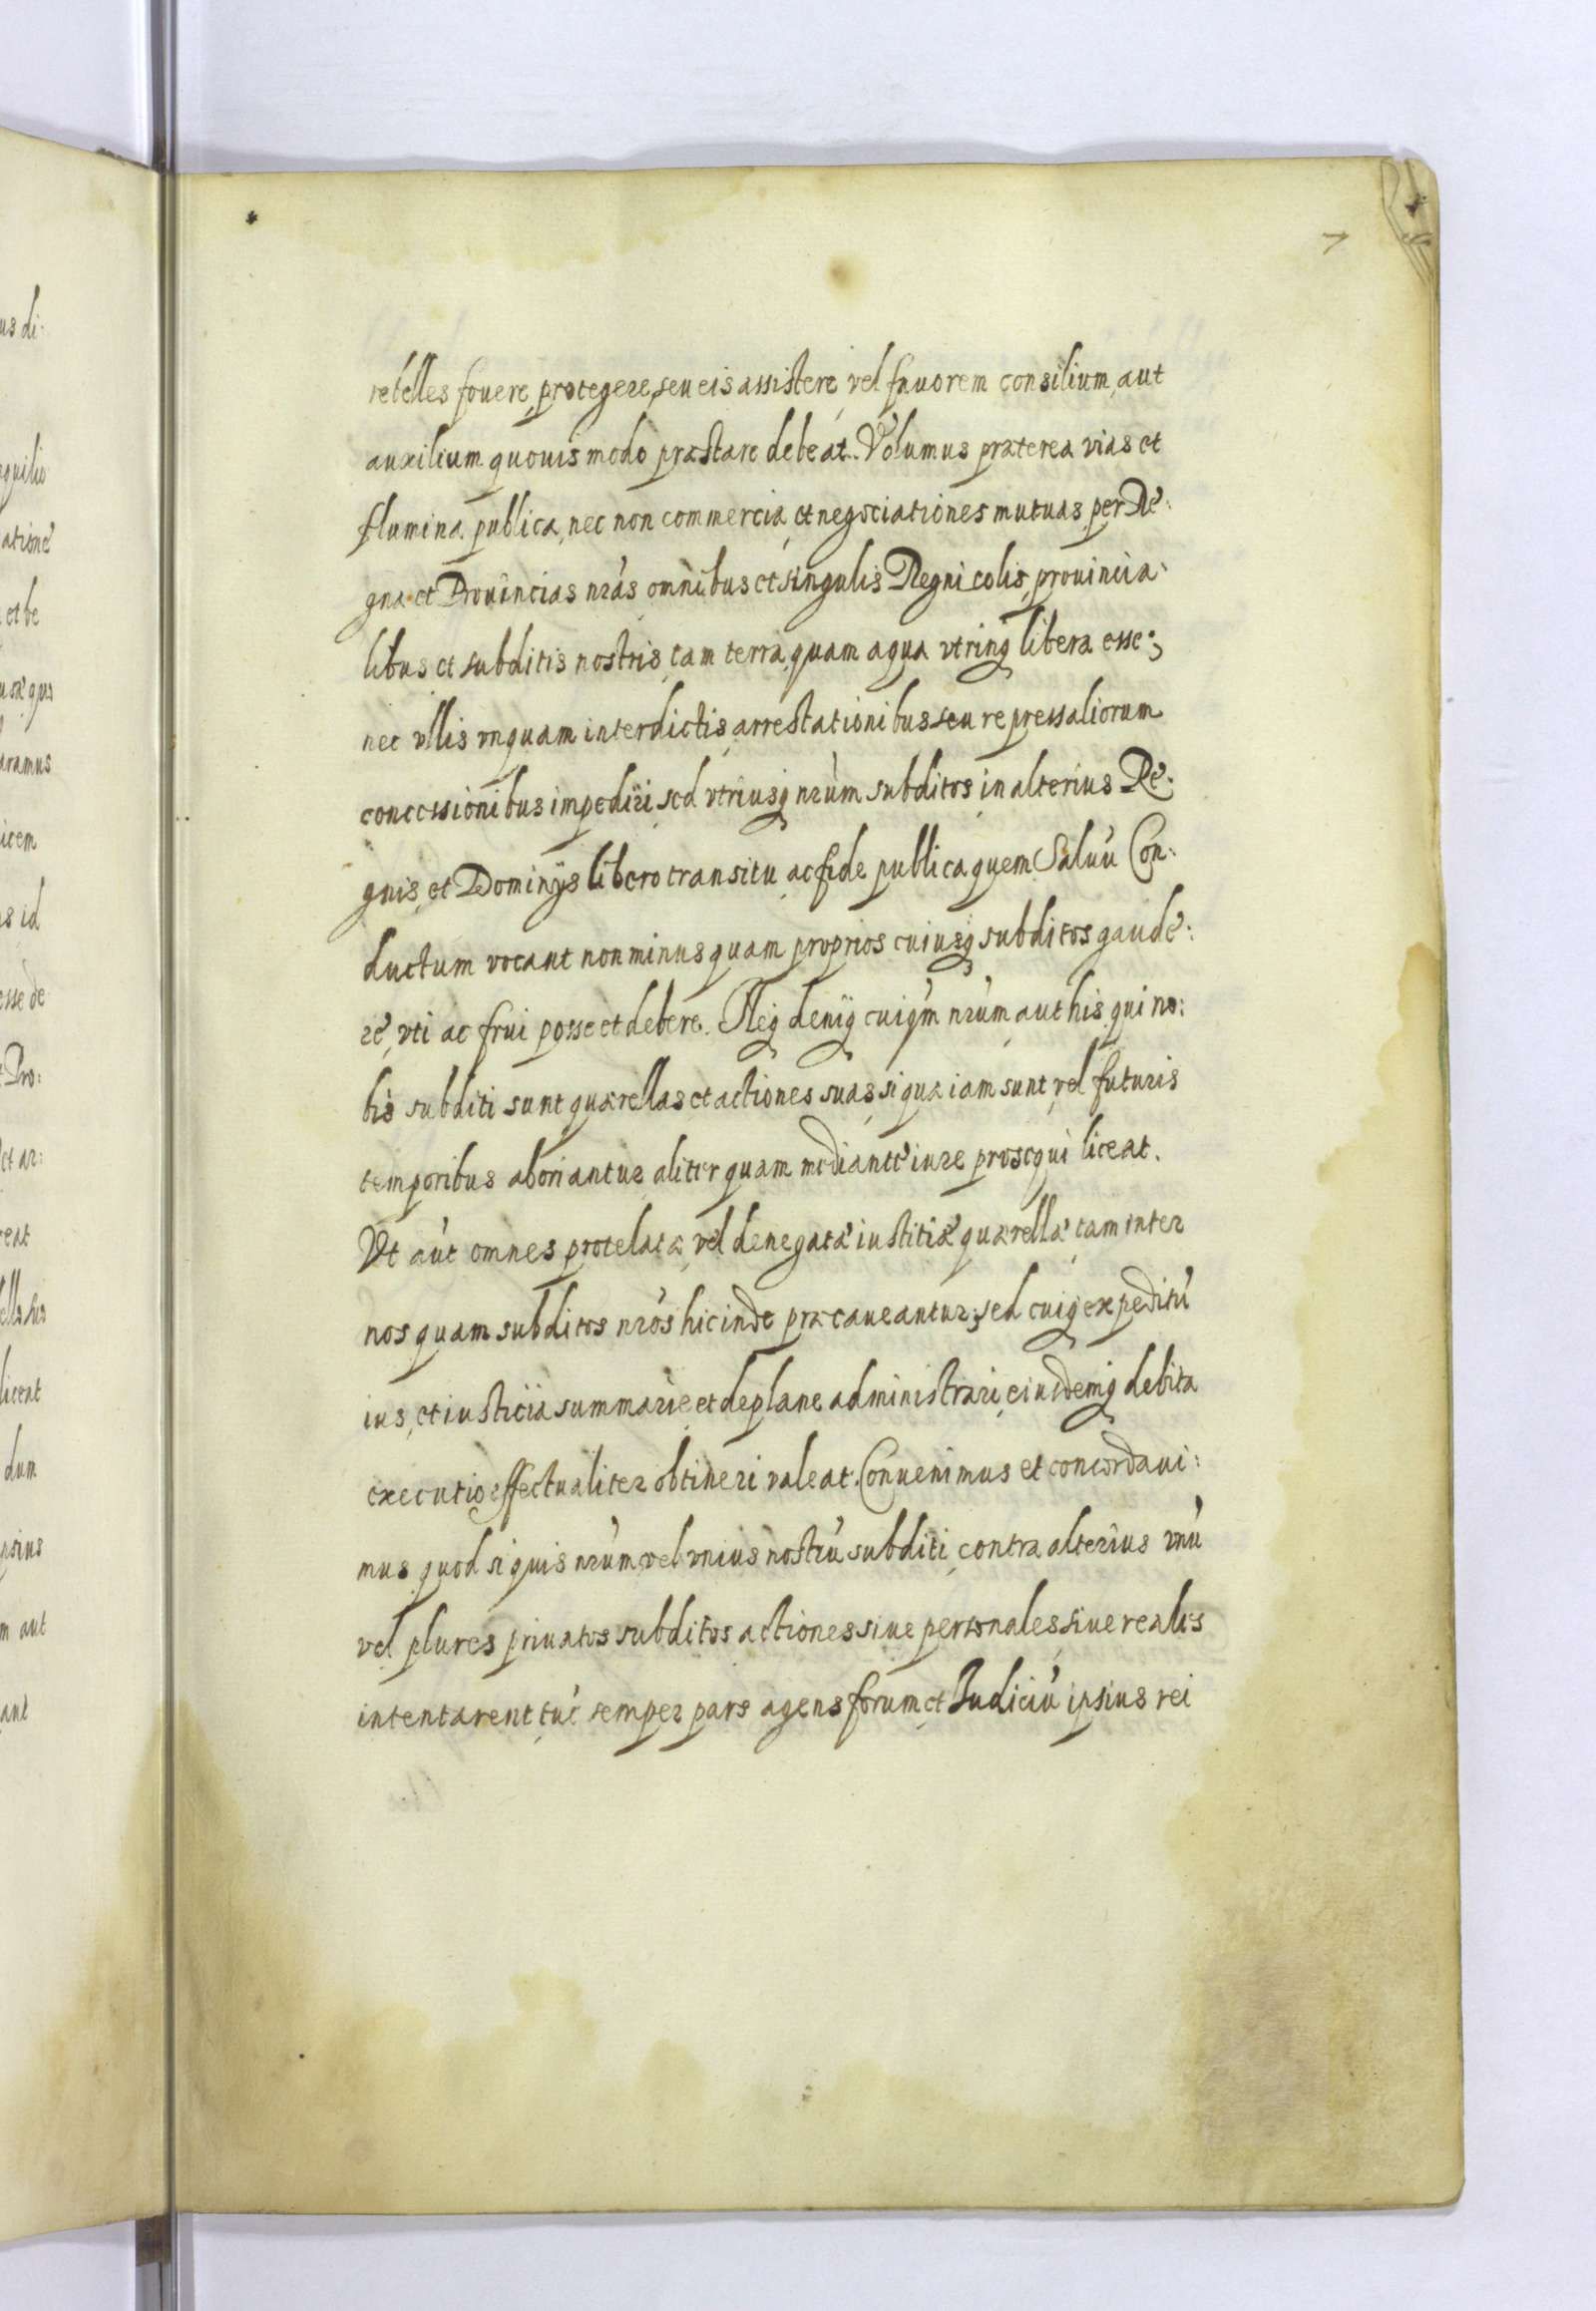 7
rebelles fouere, protegere, seu eis assistere, vel fauorem consilium, aut
auxilium quouis modo præstare debeat. Volumus præterea vias et
flumina publica, nec non commercia, et negociationes mutuas, per Re:
gna et Prouincias nr̃as omnibus et singulis Regnicolis, prouincia:
libus et subditis nostris, tam terra, quam aqua vtrinq libera esse;
nec vllis vnquam interdictis, arrestationibus seu repressaliorum
concessionibus impediri, sed vtriusq nr̃um subditos, in alterius Re:
gnis, et Dominijs libero transitu, ac fide publica quem Saluũ Con:
ductum vocant non minus quam proprios cuiusq subditos gaude:
re, vti ac frui posse et debere. Neq deniq cuiq̃m nr̃um, aut his, qui no:
bis subditi sunt, quærellas et actiones suas, si quæ iam sunt, vel futuris
temporibus aboriantur, aliter quam mediante iure prosequi liceat.
Vt aũt omnes protelatæ, vel denegatæ iustitiæ quærellæ, tam inter
nos quam subditos nr̃os hic inde præcaueantur, sed cuiq expeditũ
ius, et iusticia summarie, et de plane administrari, eiusdemq debita
executio effectualiter obtineri valeat. Conuenimus et concordaui:
mus quod si quis nr̃um, vel vnius nostrũ subditi, contra alterius vnũ
vel plures priuatos subditos actiones siue personales, siue reales
intentarent, tũc semper pars agens forum et Iudiciũ ipsius rei
us di:
atione
et be
aramus
icem
s id
esse de
Pro:
et ar:
liceat
dum
ipsius
m aut
ant